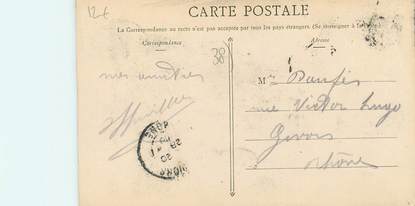 12€
CARTE POSTALE
La Correspondance au recto n'est pas acceptée par tous les pays étrangers. (Se renseigner à
Correspondance
Adresse
38
mes amitiés
Mr
rue Victor Hugo
Givors
Rhône